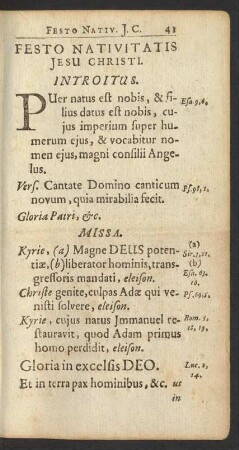 FESTO NATIV. J. C. 41
FESTO NATIVITATIS
JESU CHRISTI.
INTROITUS.
PUer natus est nobis, & fi- Esa. 9, 6.
lius datus est nobis, cu-
jus imperium super hu-
merum ejus, & vocabitur no-
men ejus, magni consilii Ange-
lus.
Vers. Cantate Domino canticum Ps. 98, 1.
novum, quia mirabilia fecit.
Gloria Patri, &c.
MISSA.
Kyrie, (a) Magne DEUS poten- (a)
tiæ, (b) liberator hominis, trans-
(b)
gressoris mandati, eleison.
Christe genite, culpas Adæ qui ve-
nisti solvere, eleison.
Kyrie, cujus natus Jmmanuel re- Rom. 5.
stauravit, quod Adam primus
homo perdidit, eleison.
Gloria in excelsis DEO. Luc. 2,
14.
Et in terra pax hominibus, &c. ut
in